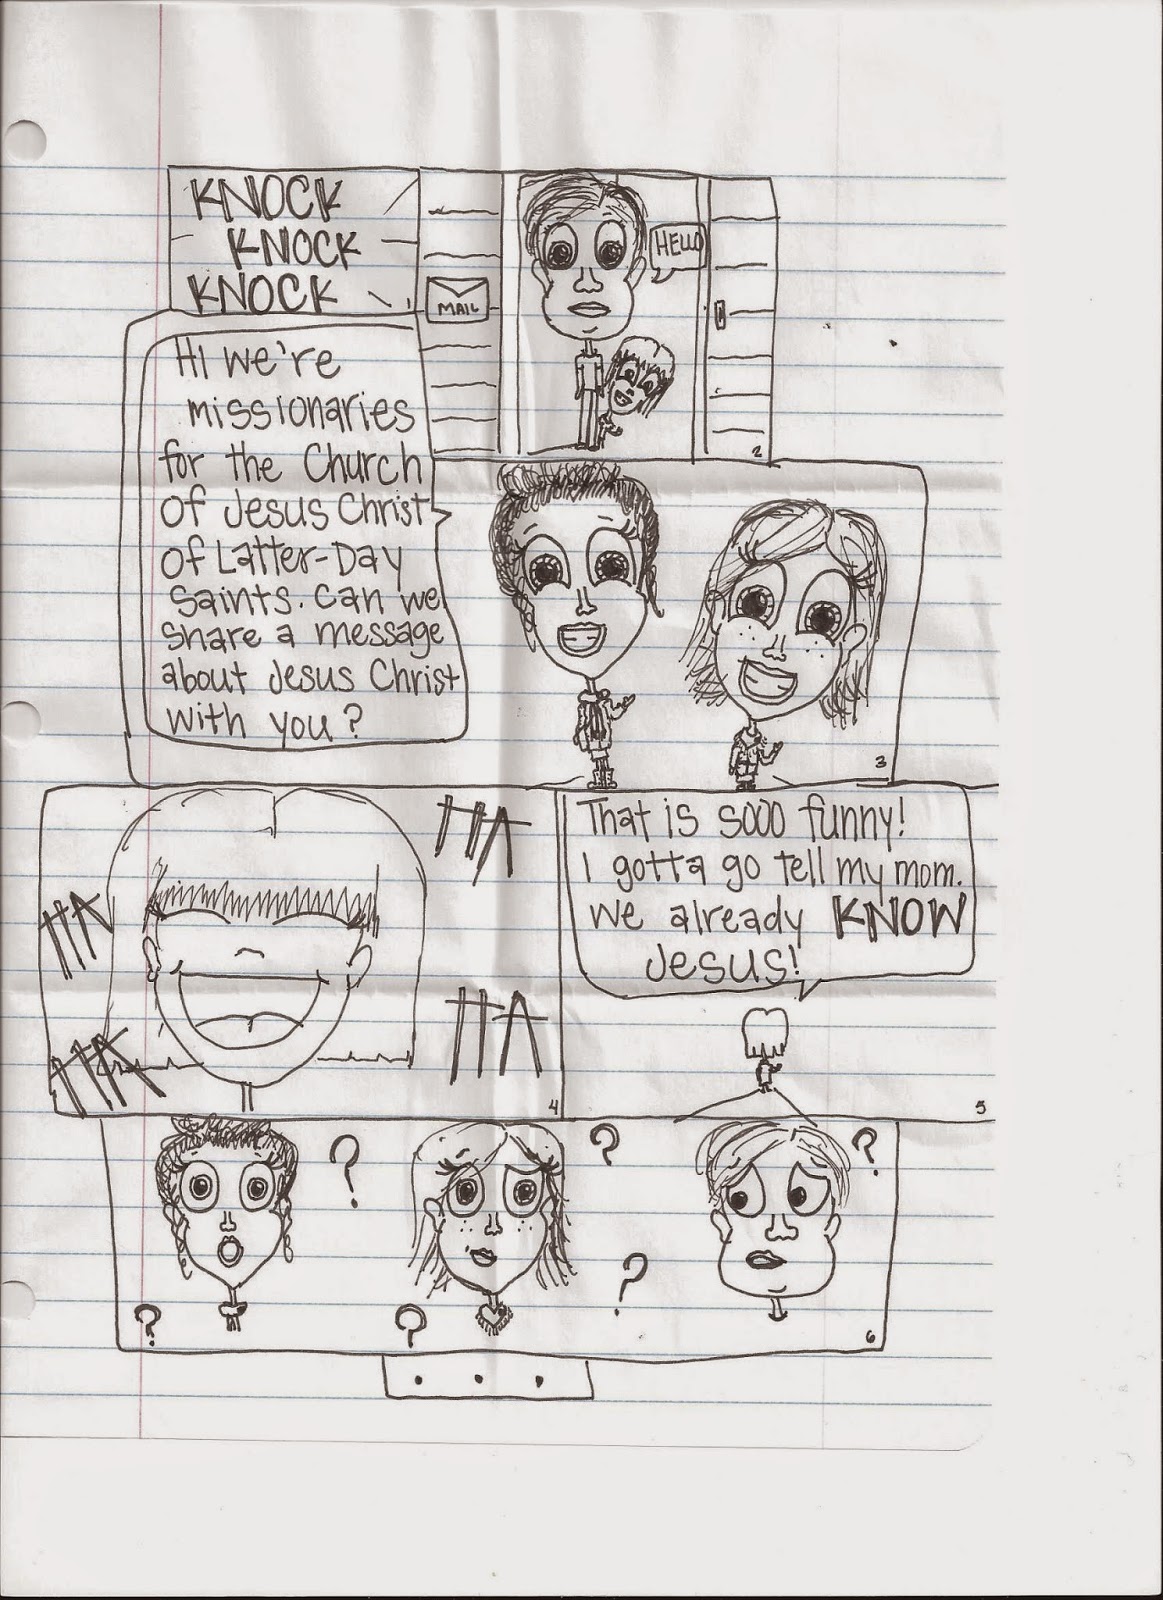 KNOCK
KNOCK
KNOCK
MAIL
HELLO
2
Hi we're
missionaries
for the Church
of Jesus Christ
of Latter-Day
Saints. Can we
share a message
about Jesus Christ
with you?
3
HA
HA
HA
HA
4
That is sooo funny!
I gotta go tell my mom.
We already KNOW
Jesus!
5
?
?
?
?
?
?
6
. . .